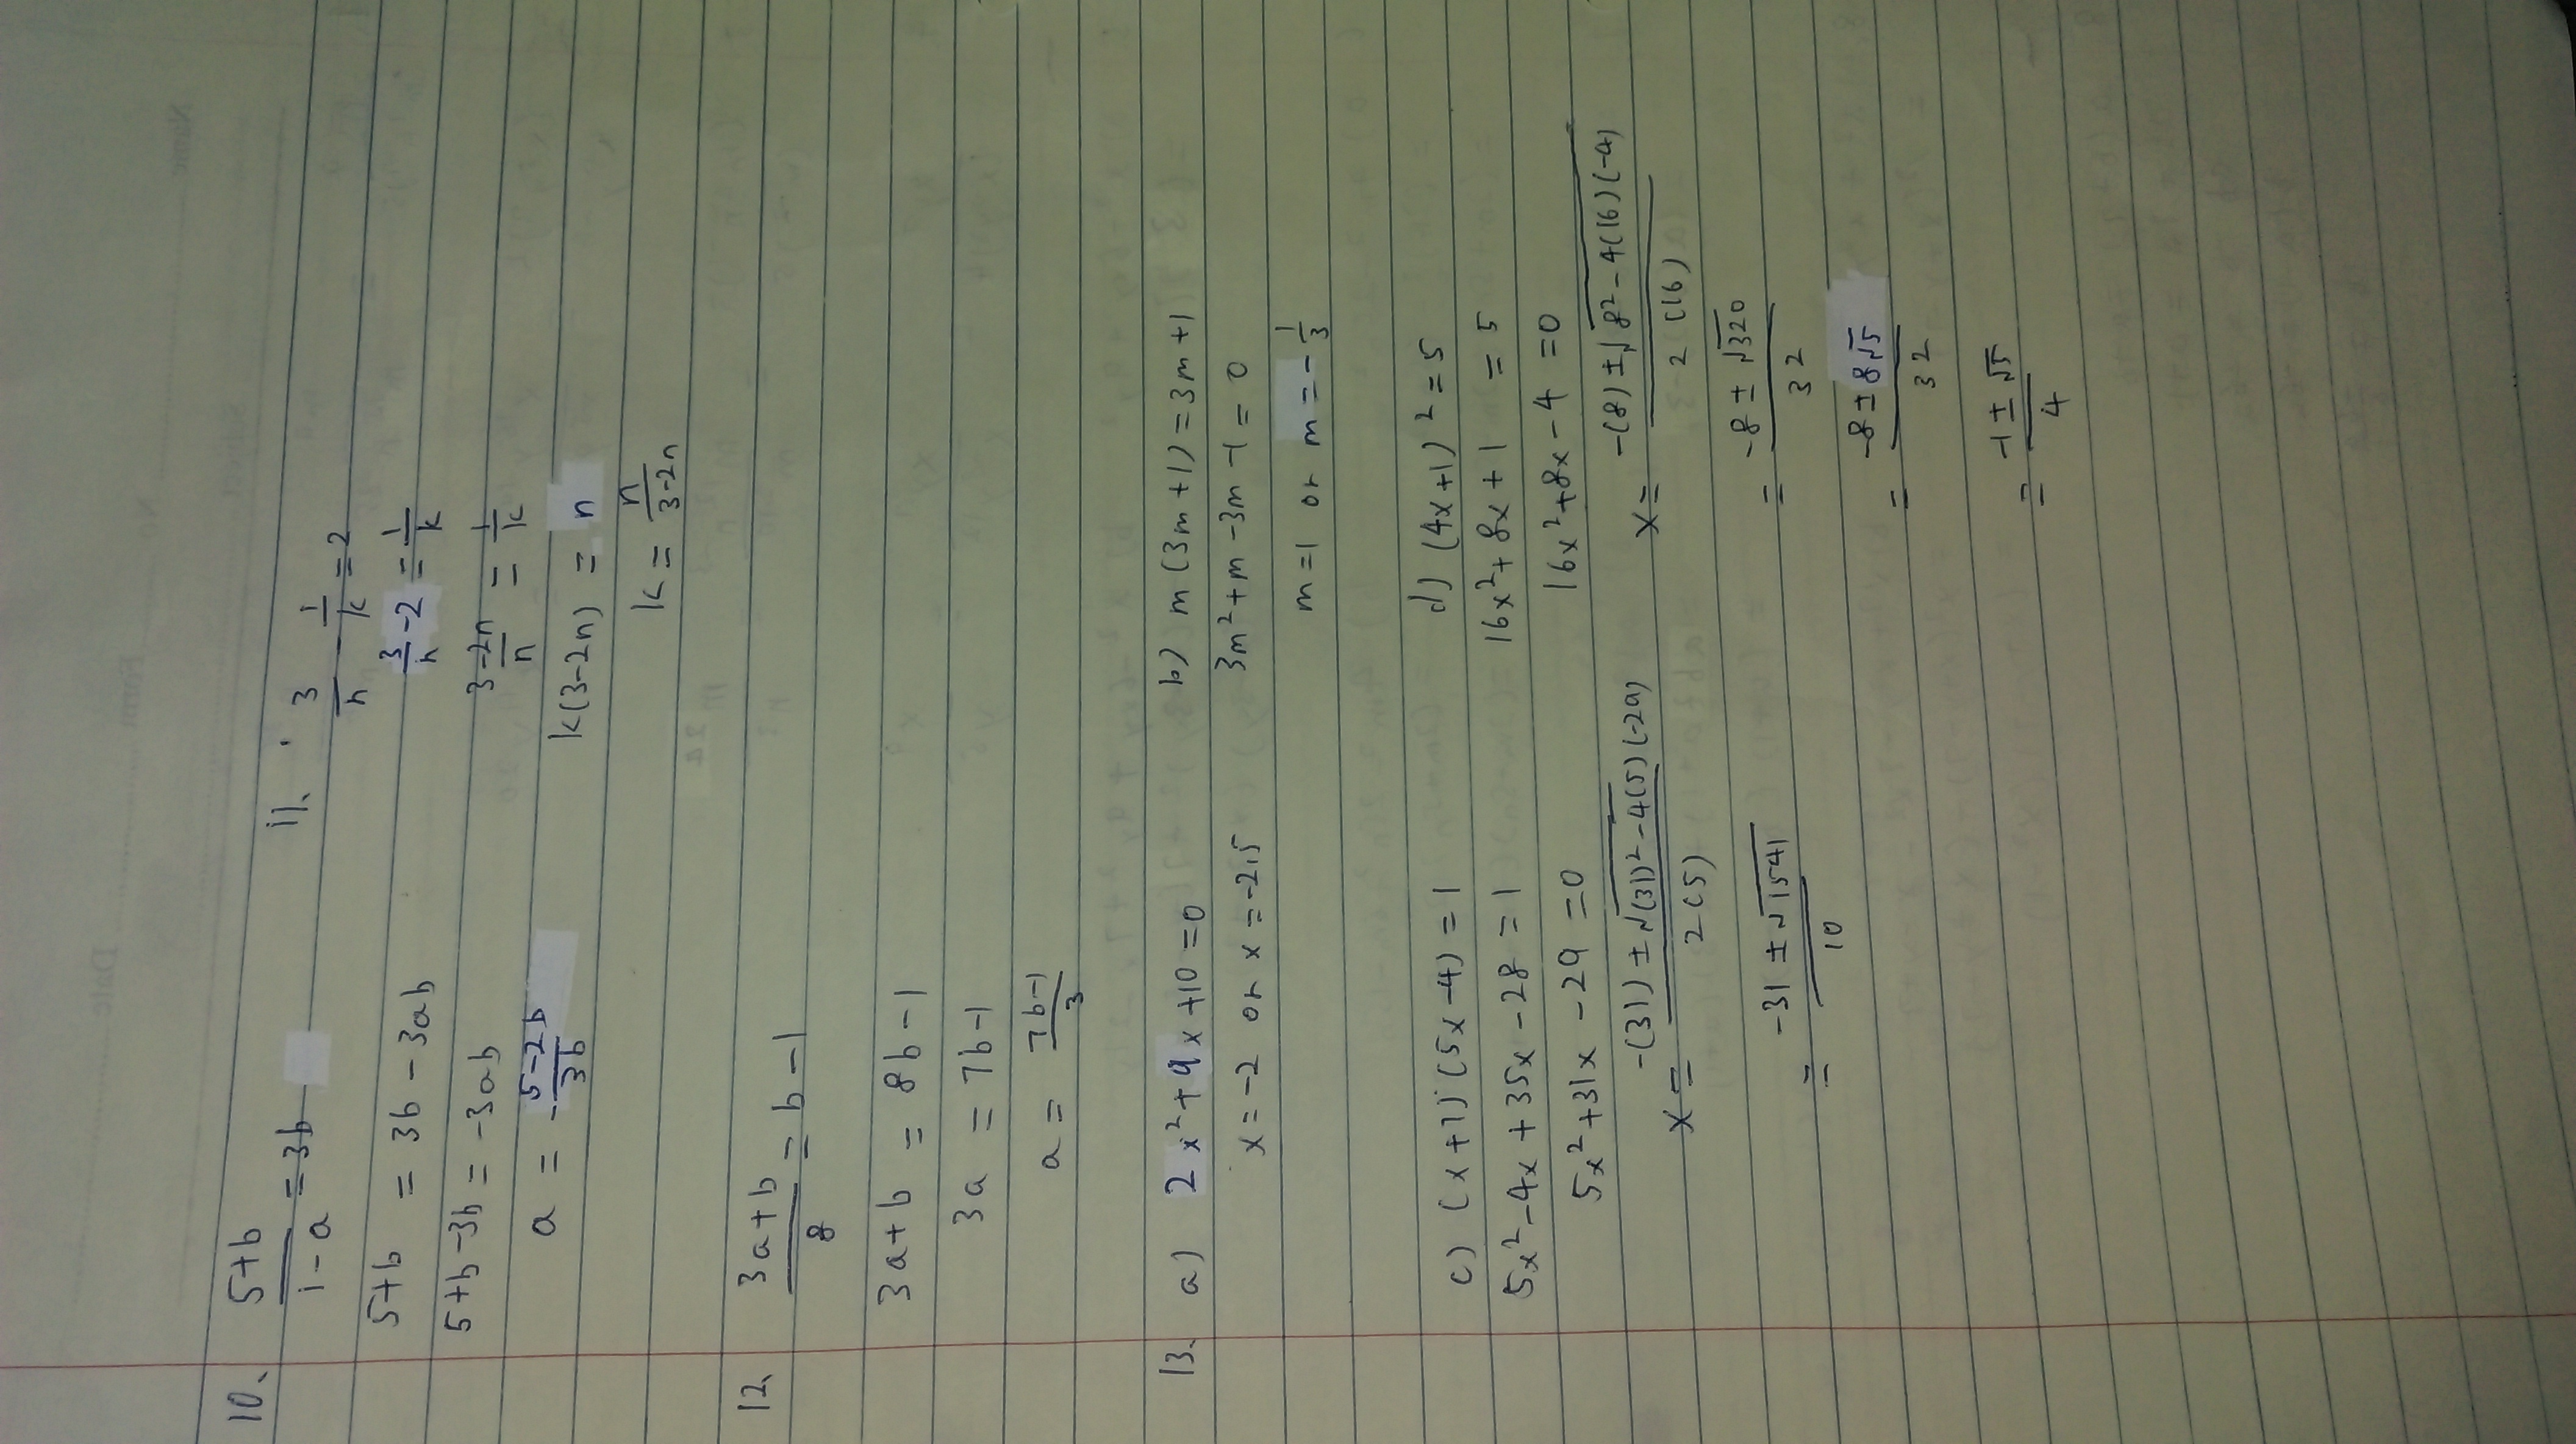 10. (5+b)/(1-a) = 3b
5+b = 3b - 3ab
5+b-3b = -3ab
a = -(5-2b)/(3b)
11. 3/n - 1/k = 2
3/n - 2 = 1/k
(3-2n)/n = 1/k
k(3-2n) = n
k = n/(3-2n)
12. (3a+b)/8 = b-1
3a+b = 8b-1
3a = 7b-1
a = (7b-1)/3
13. a) 2x²+9x+10=0
x=-2 or x=-2.5
b) m(3m+1)=3m+1
3m²+m-3m-1=0
m=1 or m=-1/3
c) (x+7)(5x-4)=1
5x²-4x+35x-28=1
5x²+31x-29=0
x = (-(31)±√(31)²-4(5)(-29))/(2(5))
= (-31±√1541)/10
d) (4x+1)²=5
16x²+8x+1=5
16x²+8x-4=0
x = (-(8)±√8²-4(16)(-4))/(2(16))
= (-8±√320)/32
= (-8±8√5)/32
= (-1±√5)/4